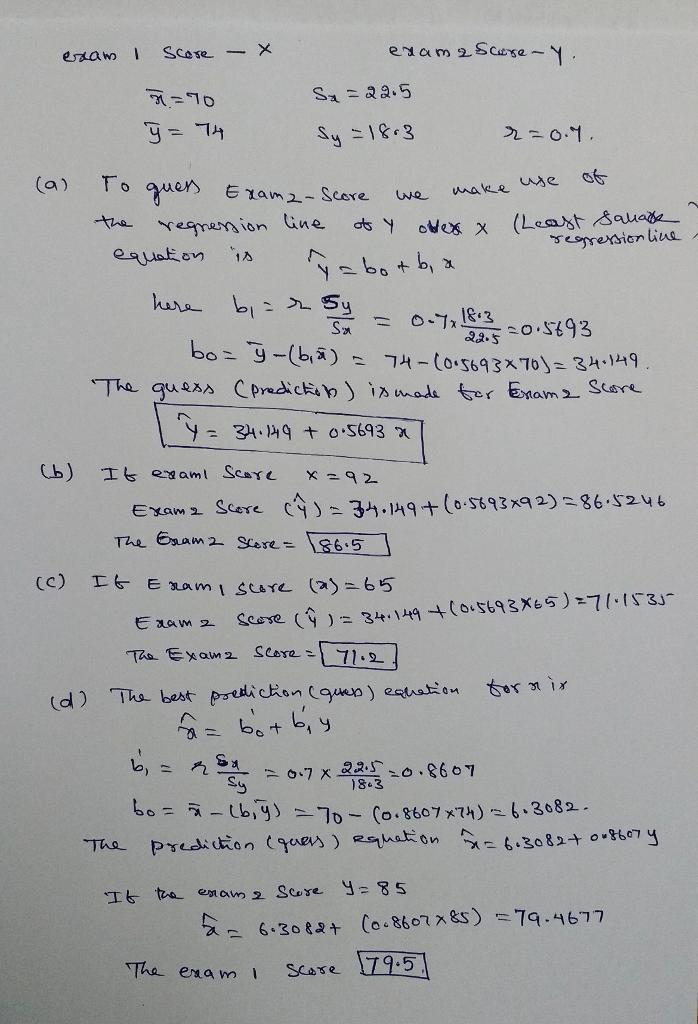 exam 1 Score - X exam 2 Score - Y.
x̄ = 70 Sx = 22.5
ȳ = 74 Sy = 18.3 r = 0.7.
(a) To guess Exam 2 - Score we make use of
the regression line of Y over x (Least Square regression line)
equation is ŷ = b0 + b1 x
here b1 = r Sy/Sx = 0.7 x 18.3/22.5 = 0.5693
b0 = ȳ - (b1 x̄) = 74 - (0.5693 x 70) = 34.149.
The guess (prediction) is made for Exam 2 Score
ŷ = 34.149 + 0.5693 x
(b) If exam1 Score X = 92
Exam 2 Score (ŷ) = 34.149 + (0.5693 x 92) = 86.5246
The Exam 2 Score = 86.5
(c) If Exam 1 score (x) = 65
Exam 2 Score (ŷ) = 34.149 + (0.5693 x 65) = 71.1535
The Exam 2 Score = 71.2
(d) The best prediction (guess) equation for x is
x̂ = b0' + b1' y
b1' = r Sx/Sy = 0.7 x 22.5/18.3 = 0.8607
b0 = x̄ - (b1 ȳ) = 70 - (0.8607 x 74) = 6.3082.
The prediction (guess) equation x̂ = 6.3082 + 0.8607 y
If the exam 2 Score Y = 85
x̂ = 6.3082 + (0.8607 x 85) = 79.4677
The exam 1 Score 79.5